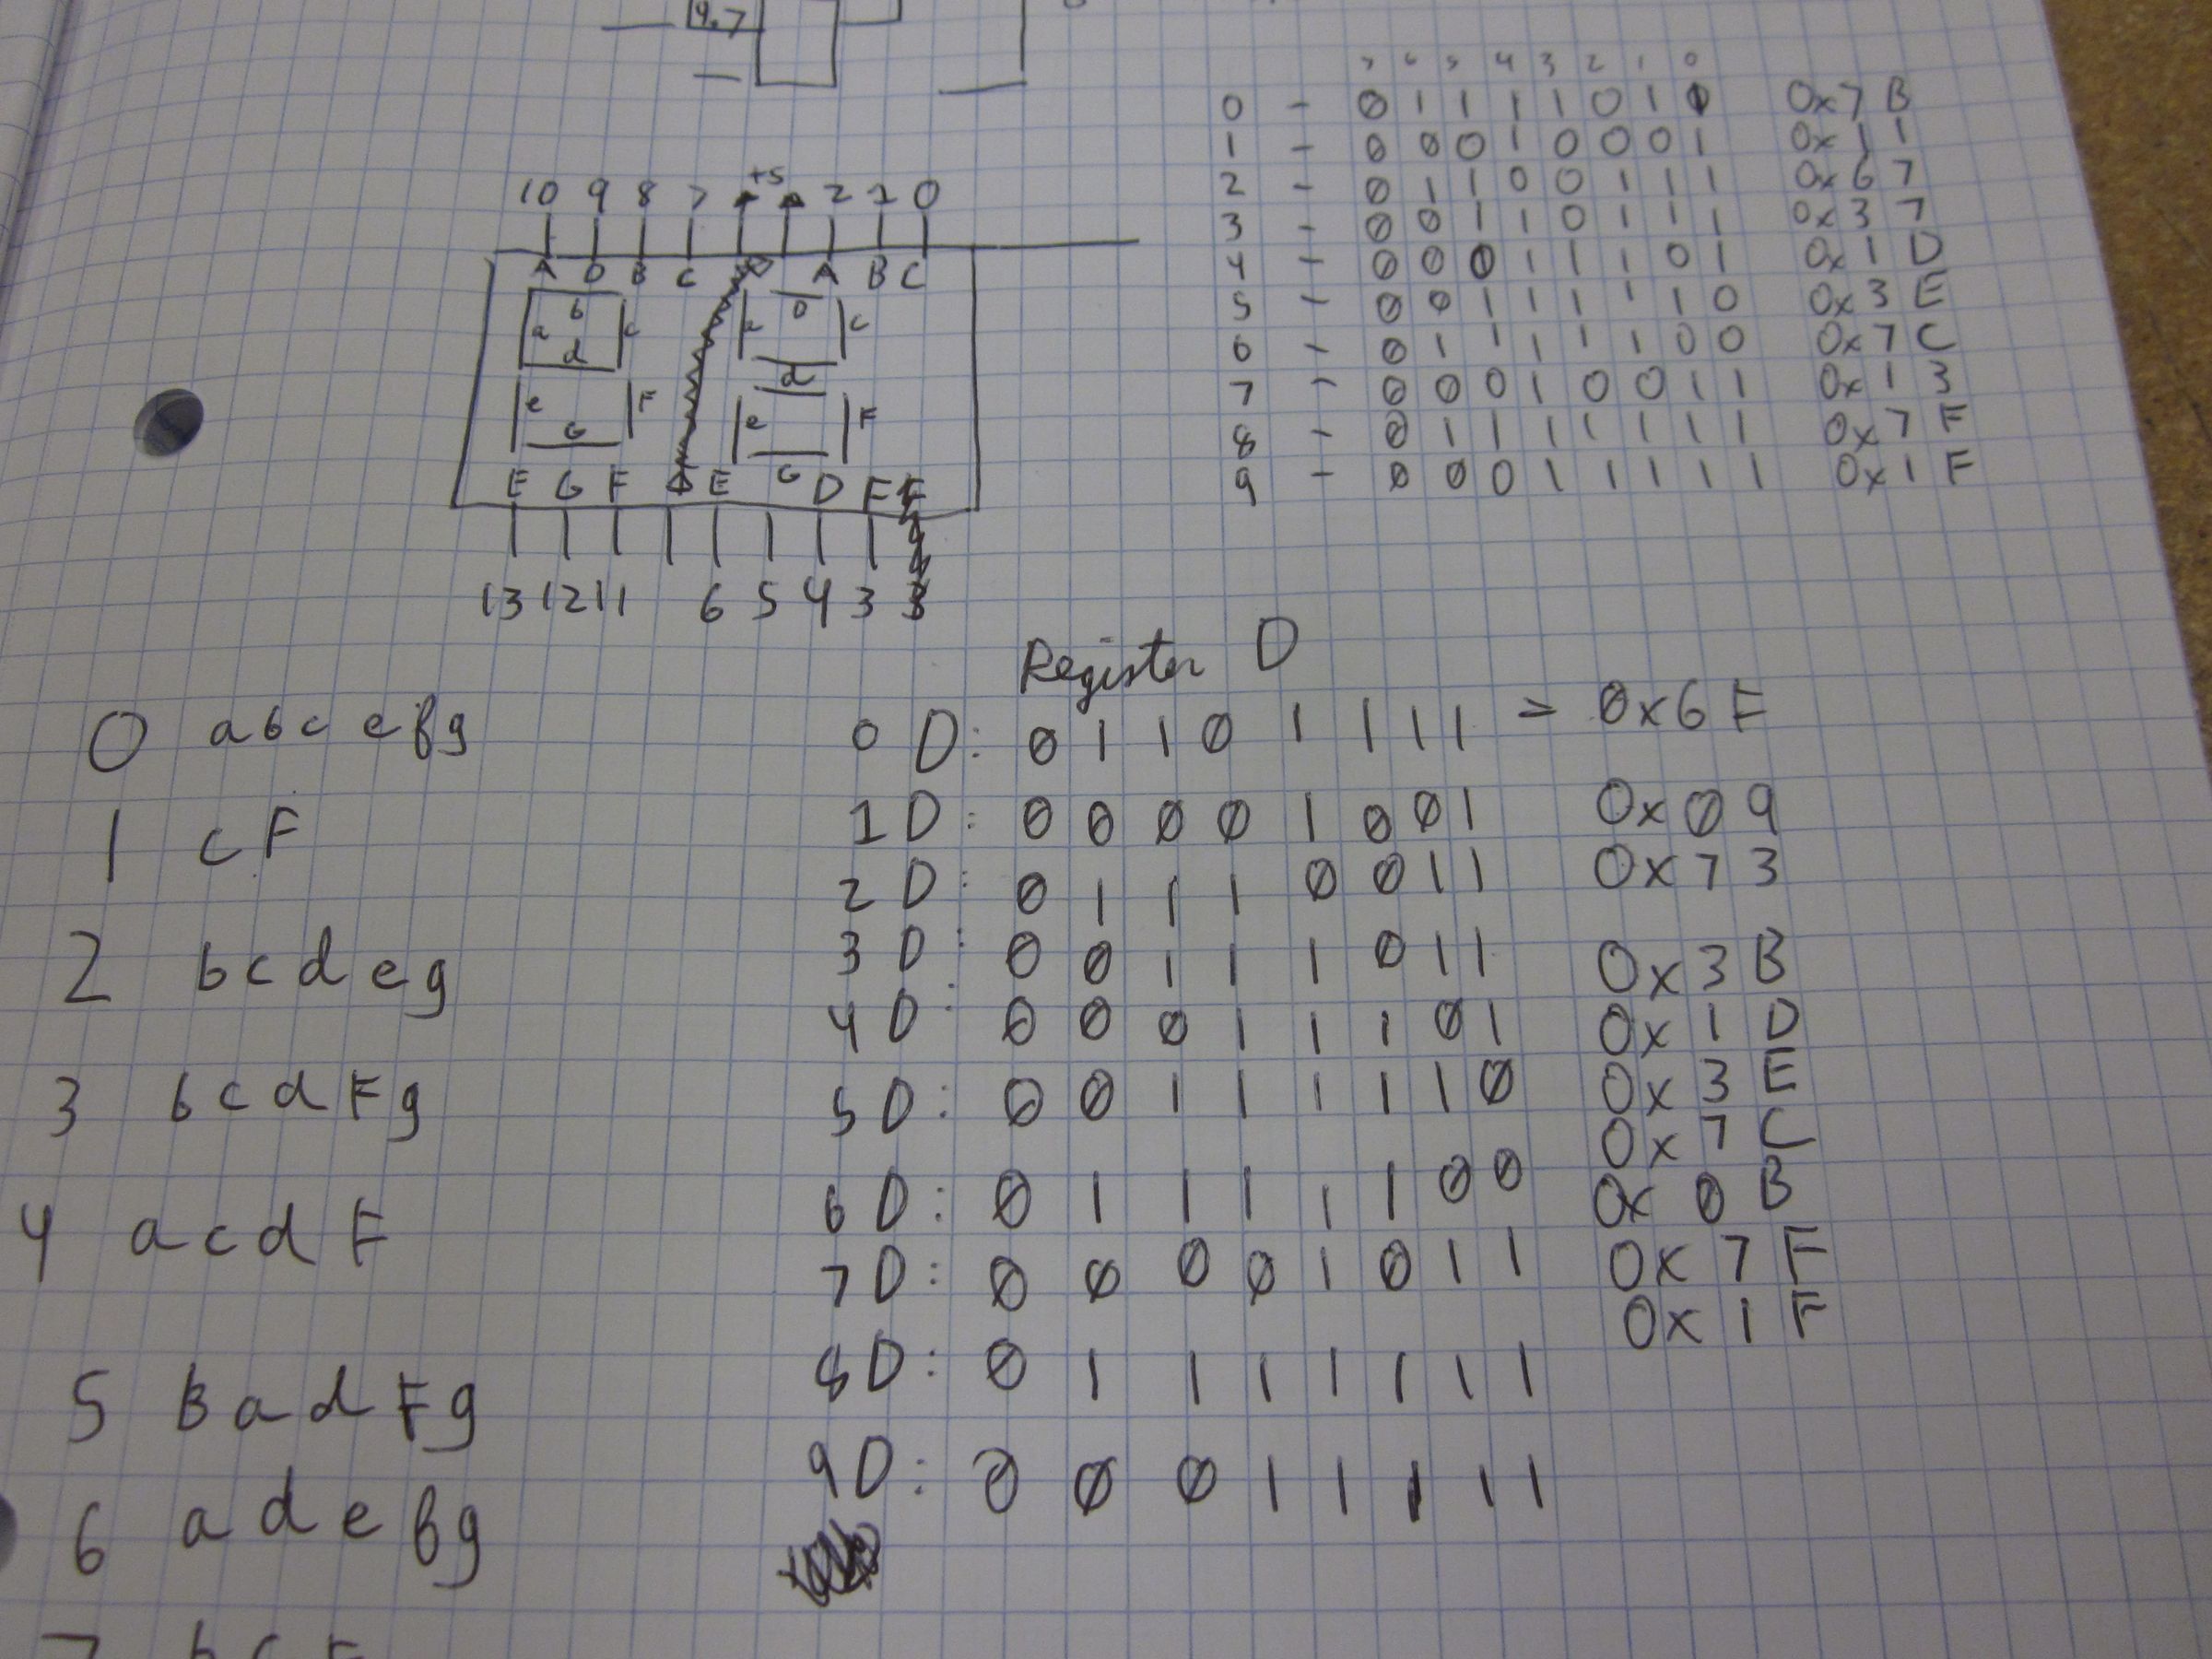 9.7
7 6 5 4 3 2 1 0
0 - 0 1 1 1 1 0 1 0x7B
1 - 0 0 0 1 0 0 0 1 0x11
2 - 0 1 1 0 0 1 1 1 0x67
3 - 0 0 1 1 0 1 1 1 0x37
4 - 0 0 0 1 1 1 0 1 0x1D
5 - 0 0 1 1 1 1 1 0 0x3E
6 - 0 1 1 1 1 1 0 0 0x7C
7 - 0 0 0 1 0 0 1 1 0x13
8 - 0 1 1 1 1 1 1 1 0x7F
9 - 0 0 0 1 1 1 1 1 0x1F
+5
10 9 8 7 2 1 0
A D B C A B C
b
a c c
d d
e F e F
G G
E G F E D F
13 12 11 6 5 4 3
Register D
0 a b c e f g
0 D: 0 1 1 0 1 1 1 1 = 0x6F
1 c F
1 D: 0 0 0 0 1 0 0 1 0x09
2 D: 0 1 1 1 0 0 1 1 0x73
2 b c d e g
3 D: 0 0 1 1 1 0 1 1 0x3B
4 D: 0 0 0 1 1 1 0 1 0x1D
3 b c d F g
5 D: 0 0 1 1 1 1 1 0 0x3E
0x7C
4 a c d F
6 D: 0 1 1 1 1 1 0 0 0x0B
7 D: 0 0 0 0 1 0 1 1 0x7F
0x1F
5 B a d F g
8 D: 0 1 1 1 1 1 1 1
6 a d e f g
9 D: 0 0 0 1 1 1 1 1
7 b c F